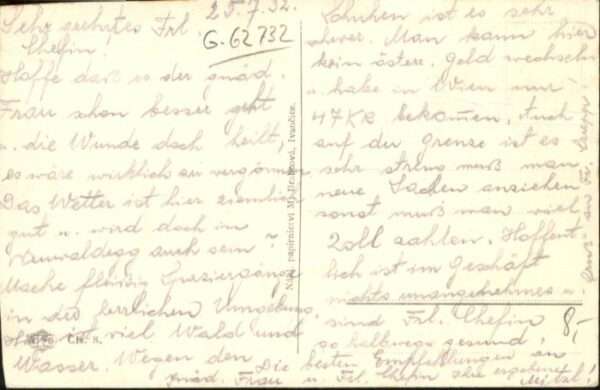 25.7.32.
G-62732
Sehr geehrtes Frl.
Chefin!
Hoffe daß es der gnäd.
Frau schon besser geht
u. die Wunde doch heilt,
es wäre wirklich zu vergönnen
Das Wetter ist hier ziemlich
gut u. wird doch in
Neuwaldegg auch sein?
Mache fleißig Spaziergänge
in der herrlichen Umgebung,
Hier ist viel Wald und
Wasser. Wegen den
Schuhen ist es sehr
schwer. Man kann hier
kein österr. Geld wechseln
u. habe in Wien nur
47 Kč bekommen. Auch
auf der Grenze ist es
sehr streng muß man
neue Sachen anziehen
sonst muß man viel
Zoll zahlen. Hoffent
lich ist im Geschäft
nichts unangenehmes u.
sind Frl. Chefin
so halbwegs gesund!
Die besten Empfehlungen an
gnäd. Frau u. Frl. Chefin Ihre ergebene
Mitzi!
Gruß an Fr.
8,-
Nákl. papírnictví M. Ivančice.